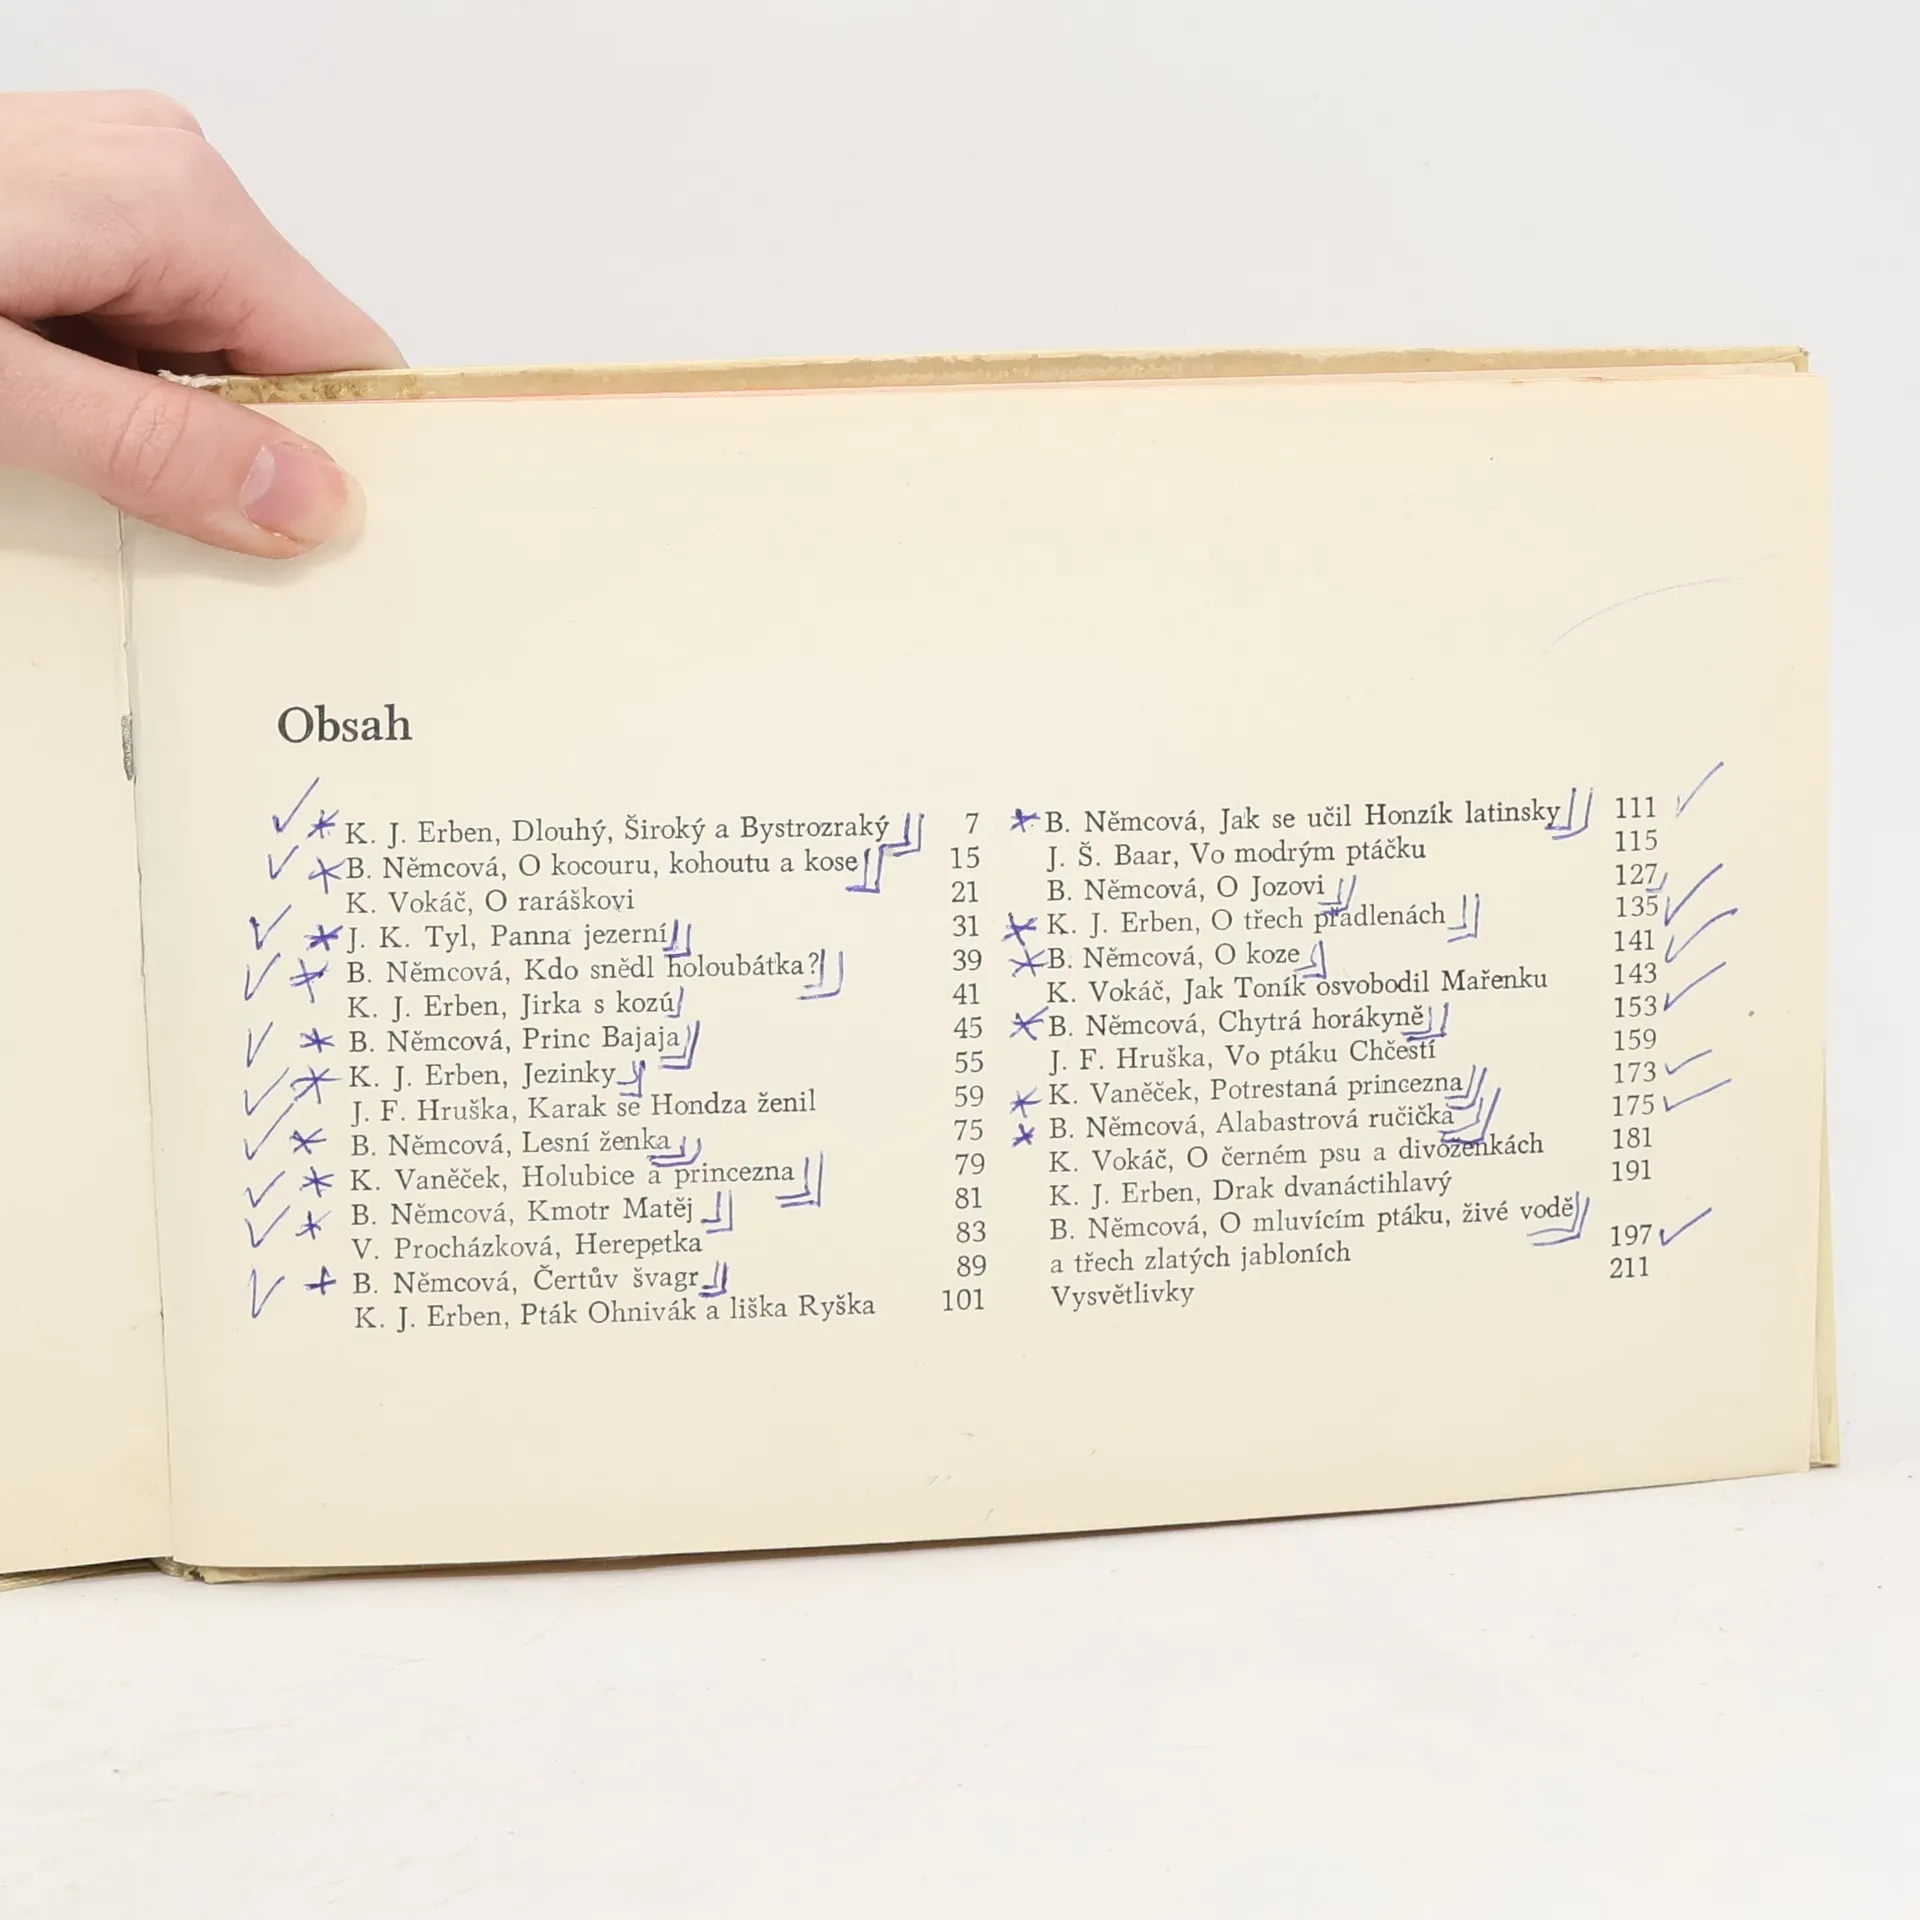 Obsah
K. J. Erben, Dlouhý, Široký a Bystrozraký 7
B. Němcová, O kocouru, kohoutu a kose 15
K. Vokáč, O raráškovi 21
J. K. Tyl, Panna jezerní 31
B. Němcová, Kdo snědl holoubátka? 39
K. J. Erben, Jirka s kozú 41
B. Němcová, Princ Bajaja 45
K. J. Erben, Jezinky 55
J. F. Hruška, Karak se Hondza ženil 59
B. Němcová, Lesní ženka 75
K. Vaněček, Holubice a princezna 79
B. Němcová, Kmotr Matěj 81
V. Procházková, Herepetka 83
B. Němcová, Čertův švagr 89
K. J. Erben, Pták Ohnivák a liška Ryška 101
B. Němcová, Jak se učil Honzík latinsky 111
J. Š. Baar, Vo modrým ptáčku 115
B. Němcová, O Jozovi 127
K. J. Erben, O třech přadlenách 135
B. Němcová, O koze 141
K. Vokáč, Jak Toník osvobodil Mařenku 143
B. Němcová, Chytrá horákyně 153
J. F. Hruška, Vo ptáku Chčestí 159
K. Vaněček, Potrestaná princezna 173
B. Němcová, Alabastrová ručička 175
K. Vokáč, O černém psu a divoženkách 181
K. J. Erben, Drak dvanáctihlavý 191
B. Němcová, O mluvícím ptáku, živé vodě
a třech zlatých jabloních 197
Vysvětlivky 211